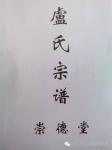 盧氏宗谱
崇德堂